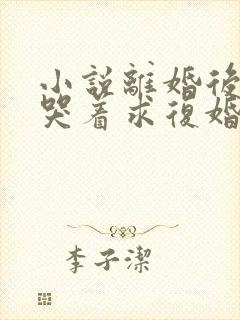 小說離婚後
哭着求復婚
李子潔